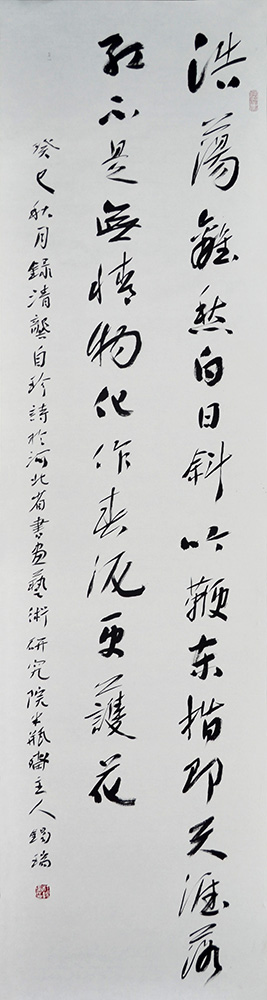 浩蕩離愁白日斜吟鞭东指即天涯落
紅不是無情物化作春泥更護花
癸巳秋月録清龔自珍詩於河北省書畫藝術研究院木瓶齋主人錫瑞